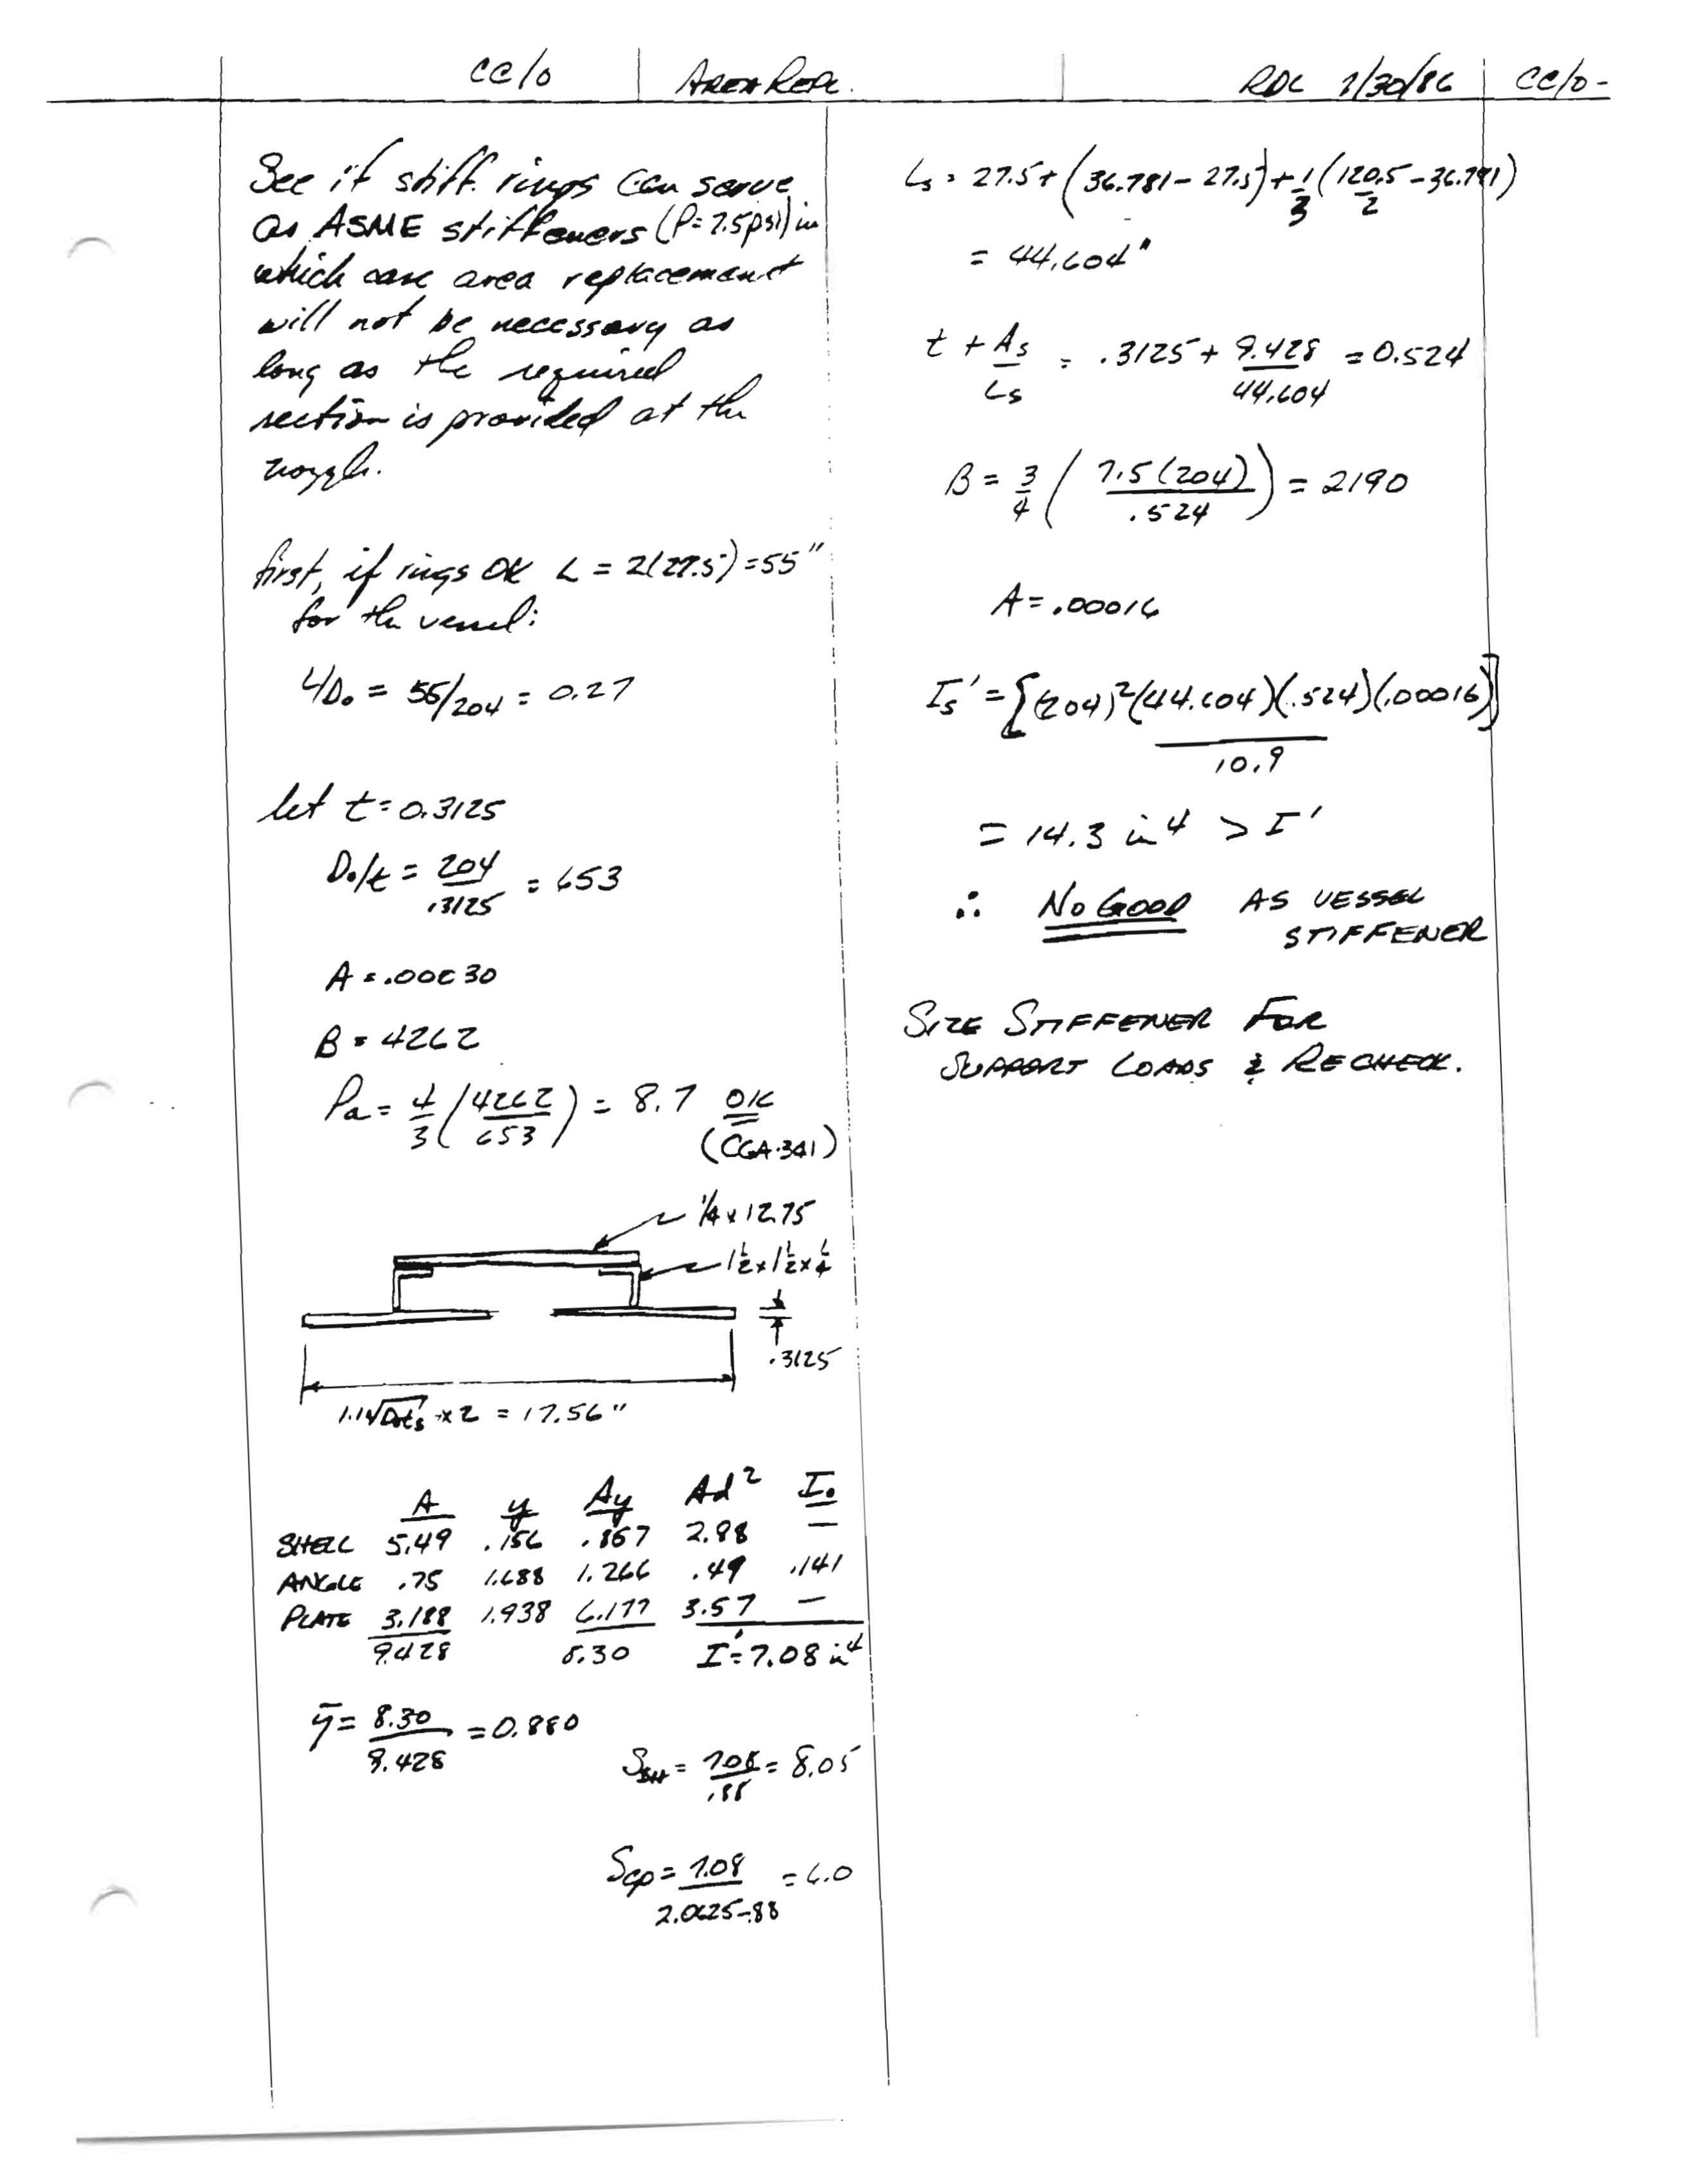 CC/O
AREA REPL.
RDC 7/30/86
CC/O-
See if stiff. rings can serve
as ASME stiffeners (P=7.5psi) in
which case area replacement
will not be necessary as
long as the required
section is provided at the
nozzle.
first, if rings OK L = 2(27.5)=55"
for the vessel:
L/Do = 55/204 = 0.27
let t=0.3125
Do/t = 204/.3125 = 653
A=.00030
B=4262
Pa = 4/3 (4262/653) = 8.7 OK
(CGA-341)
1/4 x 12.75
1 1/2 x 1 1/2 x 1/4
.3125
1.1√Dots x2 = 17.56"
A y Ay Ad² Io
SHELL 5.49 .156 .857 2.88 —
ANGLE .75 1.688 1.266 .49 .141
PLATE 3.188 1.938 6.177 3.57 —
9.428 8.30 I'=7.08 in⁴
ȳ = 8.30/9.428 = 0.880
SSH = 7.08/.88 = 8.05
Scp = 7.08/2.0625-.88 = 6.0
Ls = 27.5+(36.781-27.5)+1/3(120.5/2-36.781)
= 44.604"
t + As/Ls = .3125 + 9.428/44.604 = 0.524
B = 3/4 (7.5(204)/.524) = 2190
A=.00016
Is' = [(204)²(44.604)(.524)(.00016)]/10.9
= 14.3 in⁴ > I'
∴ NO GOOD AS VESSEL
STIFFENER
SIZE STIFFENER FOR
SUPPORT LOADS & RECHECK.